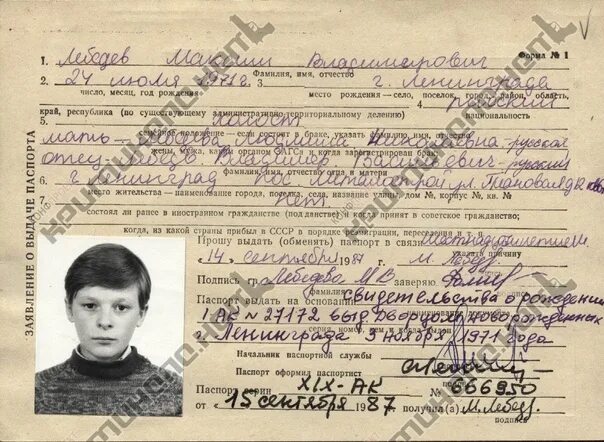 Форма № 1
ЗАЯВЛЕНИЕ О ВЫДАЧЕ ПАСПОРТА
1. Лебедев Максим Владимирович
Фамилия, имя, отчество
2. 24 июля 1971 г. 3 г. Ленинград
число, месяц, год рождения место рождения — село, поселок, город, район, область,
4 русский
край, республика (по существующему административно-территориальному делению) национальность
5. холост
семейное положение — если состоит в браке, указать фамилию, имя, отчество
мать - Людмила - русская
жены, мужа, каким органом ЗАГСа и когда зарегистрирован брак
отец Лебедев Владимир - русский
фамилии, имена, отчества отца и матери
6. г. Ленинград пос. Металлострой ул. Плановая д.
место жительства — наименование города, поселка, села, название улицы, дом №, корпус №, кв. №
нет
состояли ли ранее в иностранном гражданстве (подданстве) и когда принят в советское гражданство;
когда, из какой страны прибыл в СССР в порядке репатриации, переселения и т. п.
Прошу выдать (обменять) паспорт в связи
14 сентября 1987 г. М. Лебед
Подпись гр. Лебедева М В заверяю
фамилия
Паспорт выдать на основании свидетельства о рождении
I АК № 27172 выд. Дворцом новорожденных
серия, номер, кем и когда выдан
г. Ленинграда 3 ноября 1971 года
Начальник паспортной службы
Паспорт оформил паспортист
подпись
Паспорт серии XIX-АК № 666950
от « 15 сентября 1987 г. получил(а) М. Лебед
подпись
криминало.нет